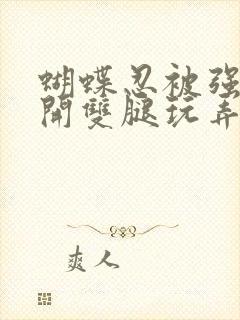 蝴蝶忍被强
開雙腿玩弄
爽人